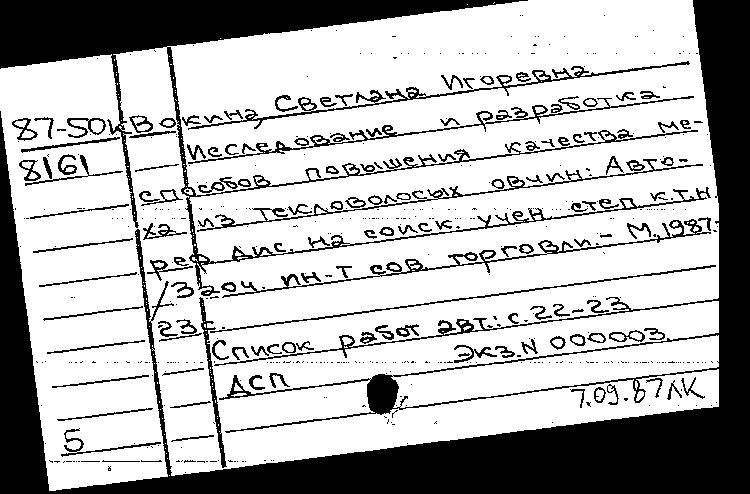 87-50к Вокина, Светлана Игоревна
8161 Исследование и разработка
способов повышения качества ме-
ха из текловолосых овчин: Авто-
реф дис. на соиск. учен. степ к.т.н.
/Заоч. ин-т сов. торговли. - М., 1987.-
23 с.
Список работ авт.: с. 22-23
ДСП Экз. N 000003.
7.09.87 ЛК
5